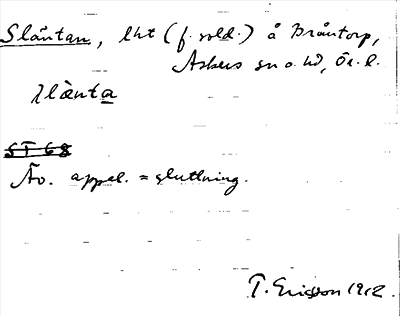 Släntan, lht (f. sold.) å Bråntorp,
Askers sn o. hd, Ör. l.
slänta
ST 68
Äv. appel. = sluttning.
T. Ericsson 1912.